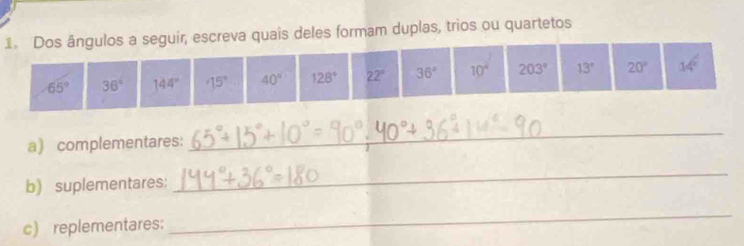 1. Dos ângulos a seguir, escreva quais deles formam duplas, trios ou quartetos
65° 36° 144° 15° 40° 128° 22° 36° 10° 203° 13° 20° 14°
a) complementares: 65°+15°+10°=90°, 40°+36°+14°=90
b) suplementares: 144°+36°=180
c) replementares: